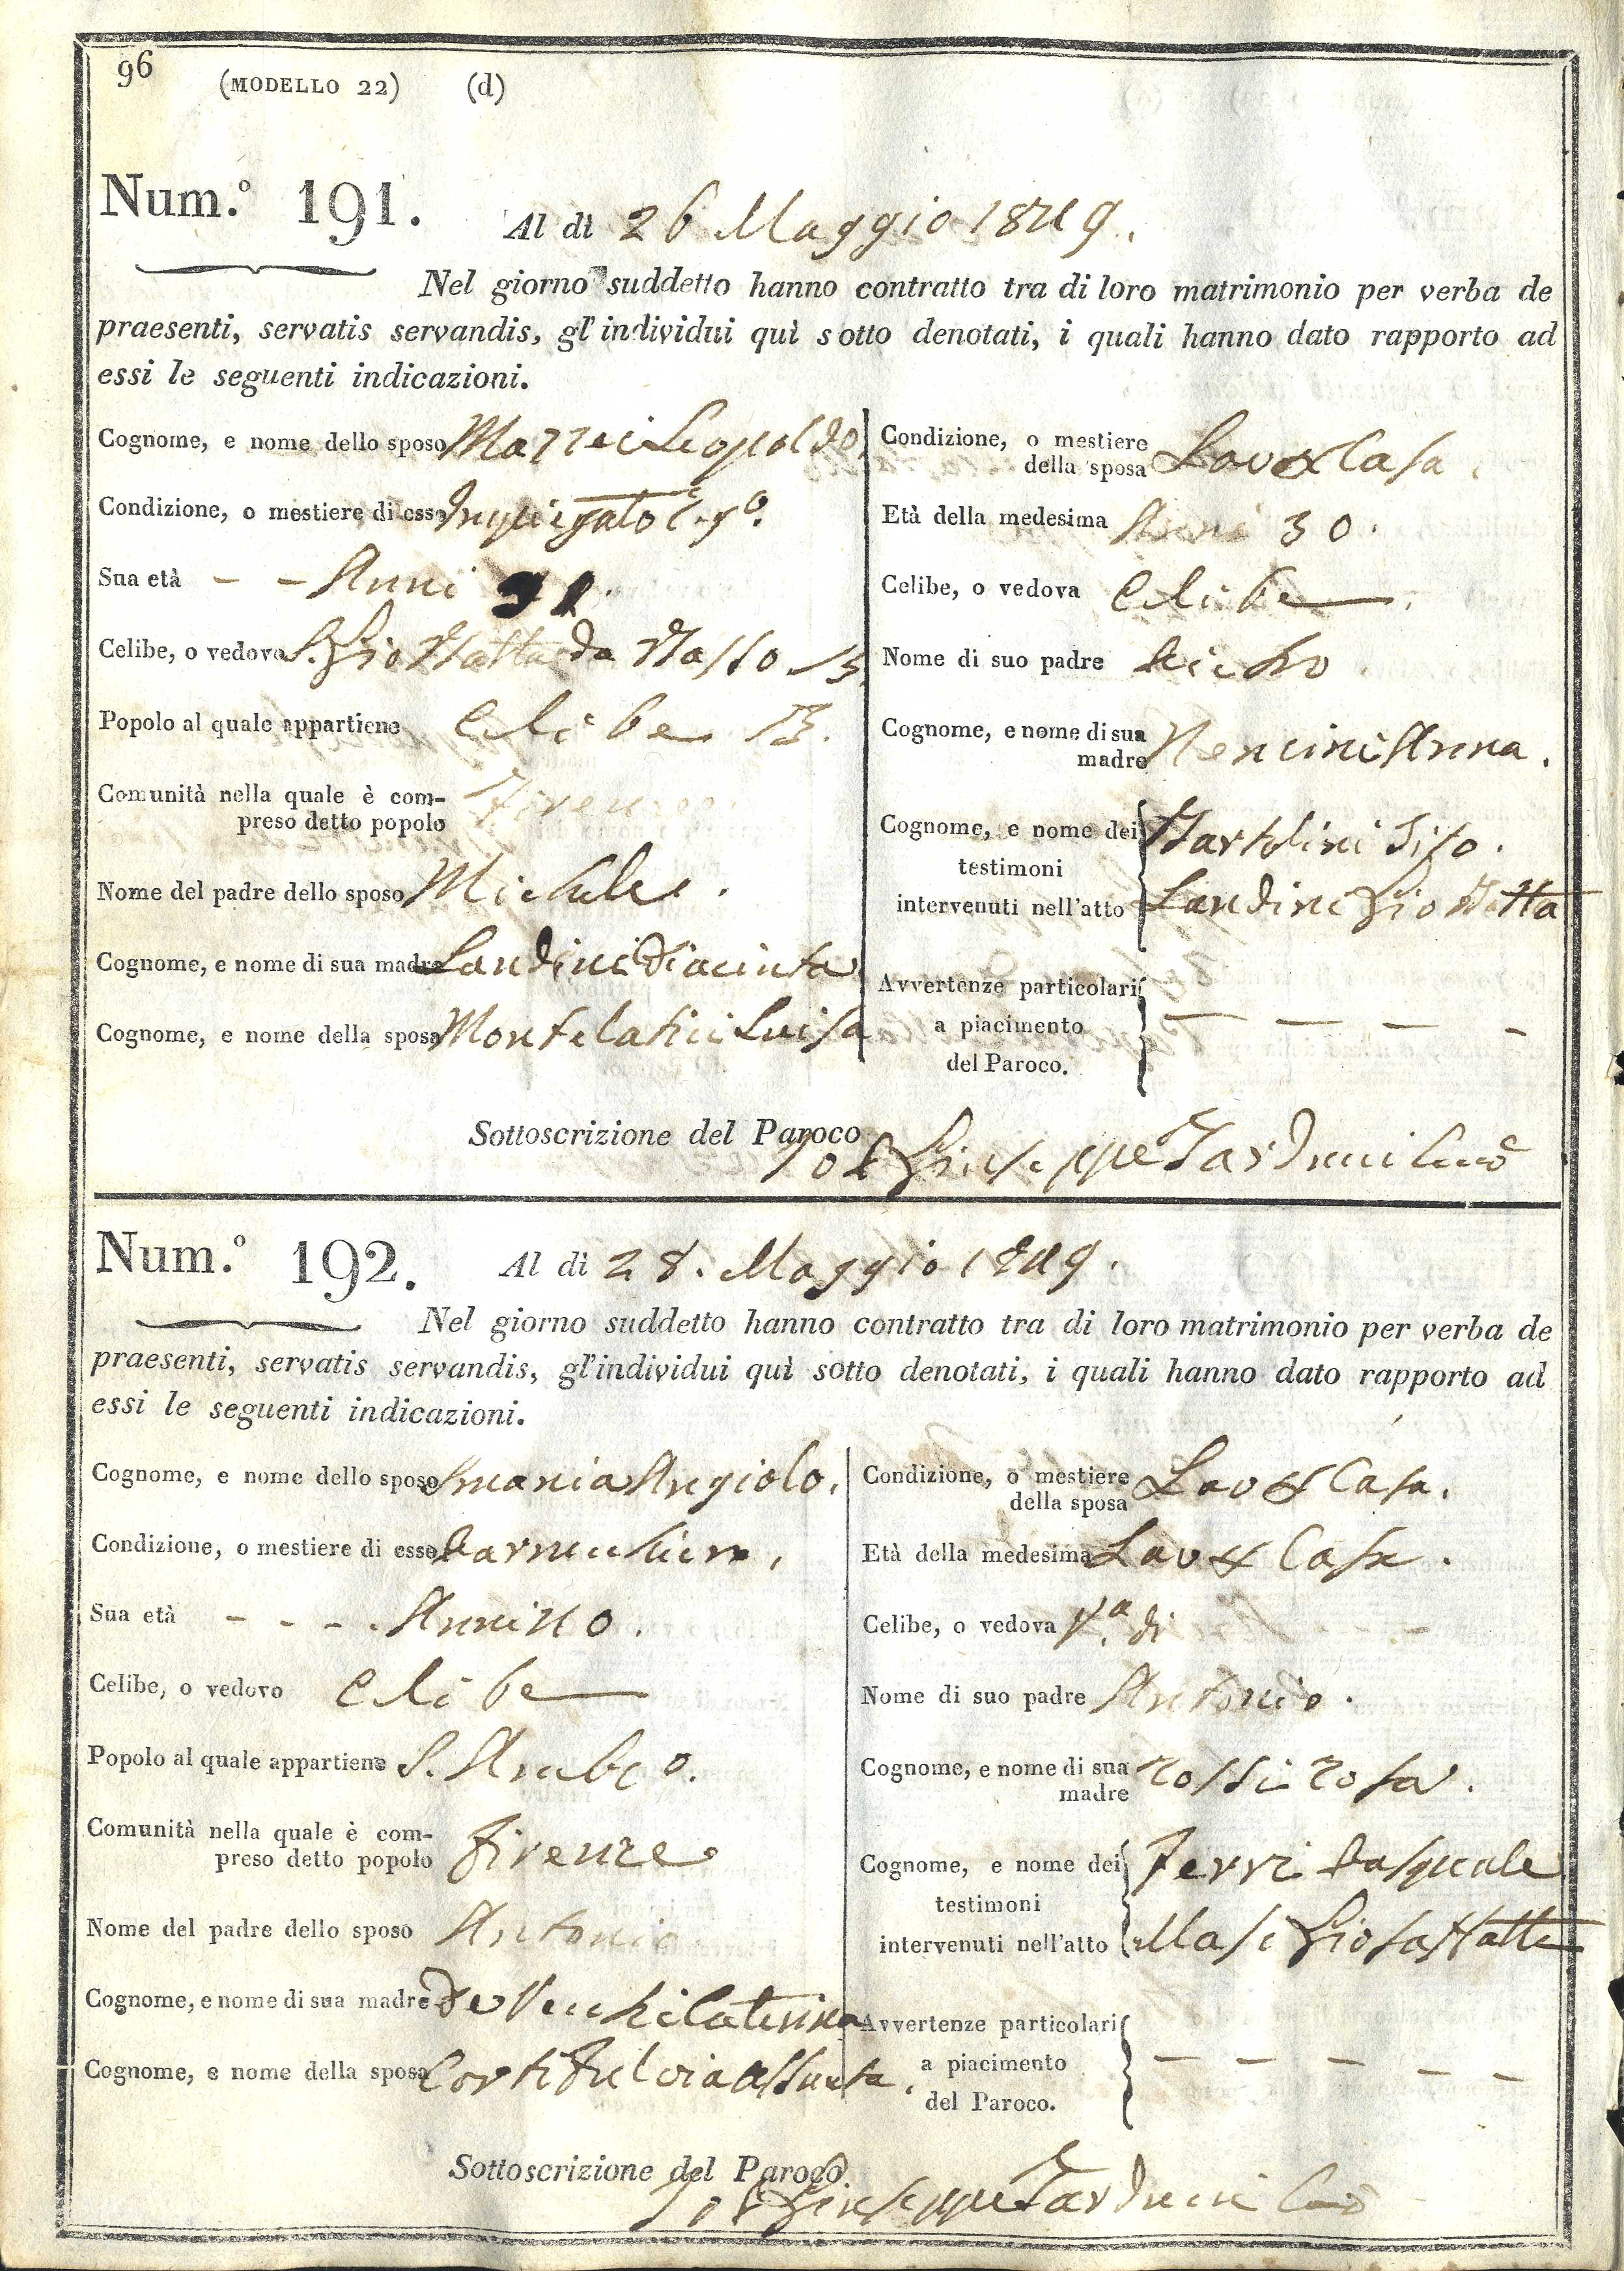 96
(MODELLO 22) (d)
Num.º 191. Al dì 26 Maggio 1849.
Nel giorno suddetto hanno contratto tra di loro matrimonio per verba de
praesenti, servatis servandis, gl'individui quì sotto denotati, i quali hanno dato rapporto ad
essi le seguenti indicazioni.
Cognome, e nome dello sposo Mazzei Leopoldo
Condizione, o mestiere di esso Impiegato
Sua età - - Anni
Celibe, o vedovo S. Gio Batta da Basso
Popolo al quale appartiene Celibe
Comunità nella quale è com-
preso detto popolo Firenze
Nome del padre dello sposo Michele.
Cognome, e nome di sua madre Landini Giacinta
Cognome, e nome della sposa Montelatici Luisa
Condizione, o mestiere
della sposa Casa
Età della medesima Anni 30.
Celibe, o vedova Celibe
Nome di suo padre Pietro
Cognome, e nome di sua
madre Nencini Anna.
Cognome, e nome dei Bartolini
testimoni
intervenuti nell'atto Landini Gio Batta
Avvertenze particolari
a piacimento - - - -
del Paroco.
Sottoscrizione del Paroco Giuseppe Tarduci
Num.º 192. Al dì 28. Maggio 1849.
Nel giorno suddetto hanno contratto tra di loro matrimonio per verba de
praesenti, servatis servandis, gl'individui quì sotto denotati, i quali hanno dato rapporto ad
essi le seguenti indicazioni.
Cognome, e nome dello sposo Smania Angiolo.
Condizione, o mestiere di esso
Sua età - - - Anni 40.
Celibe, o vedovo Celibe
Popolo al quale appartiene S. Ambº.
Comunità nella quale è com-
preso detto popolo Firenze
Nome del padre dello sposo Antonio
Cognome, e nome di sua madre De Vecchi Caterina
Cognome, e nome della sposa Corti Fulvia Assunta.
Condizione, o mestiere
della sposa Casa.
Età della medesima Casa.
Celibe, o vedova Vª. di
Nome di suo padre Antonio.
Cognome, e nome di sua
madre Rossi Rosa.
Cognome, e nome dei Ferri Pasquale
testimoni
intervenuti nell'atto Masi
Avvertenze particolari
a piacimento - - - - -
del Paroco.
Sottoscrizione del Paroco Giuseppe Tarduci